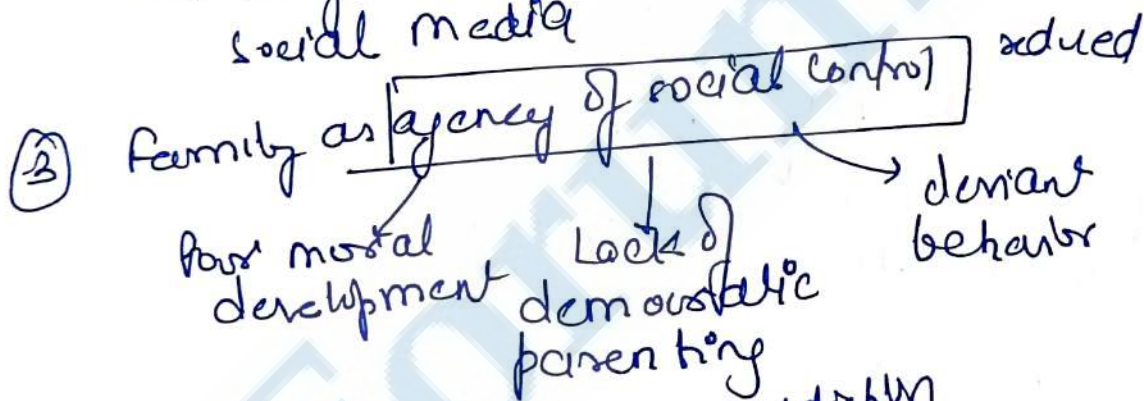 social media
③ family as agency of social control reduced
Poor moral development
Lack of democratic parenting
deviant behavior